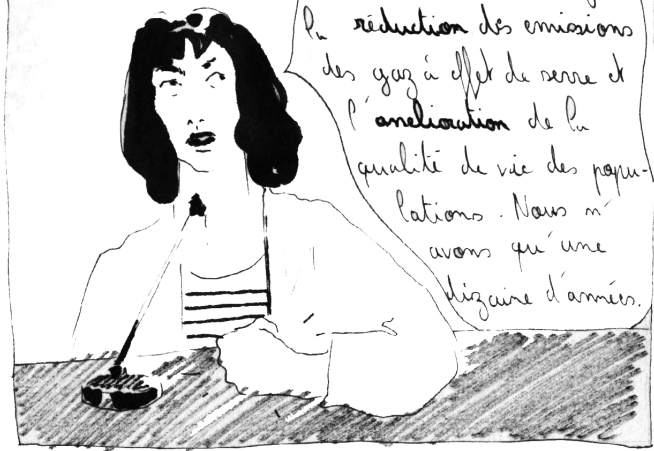 la réduction des emissions
des gaz à effet de serre et
l'amelioration de la
qualité de vie des popu-
lations. Nous n'
avons qu'une
dizaine d'années.